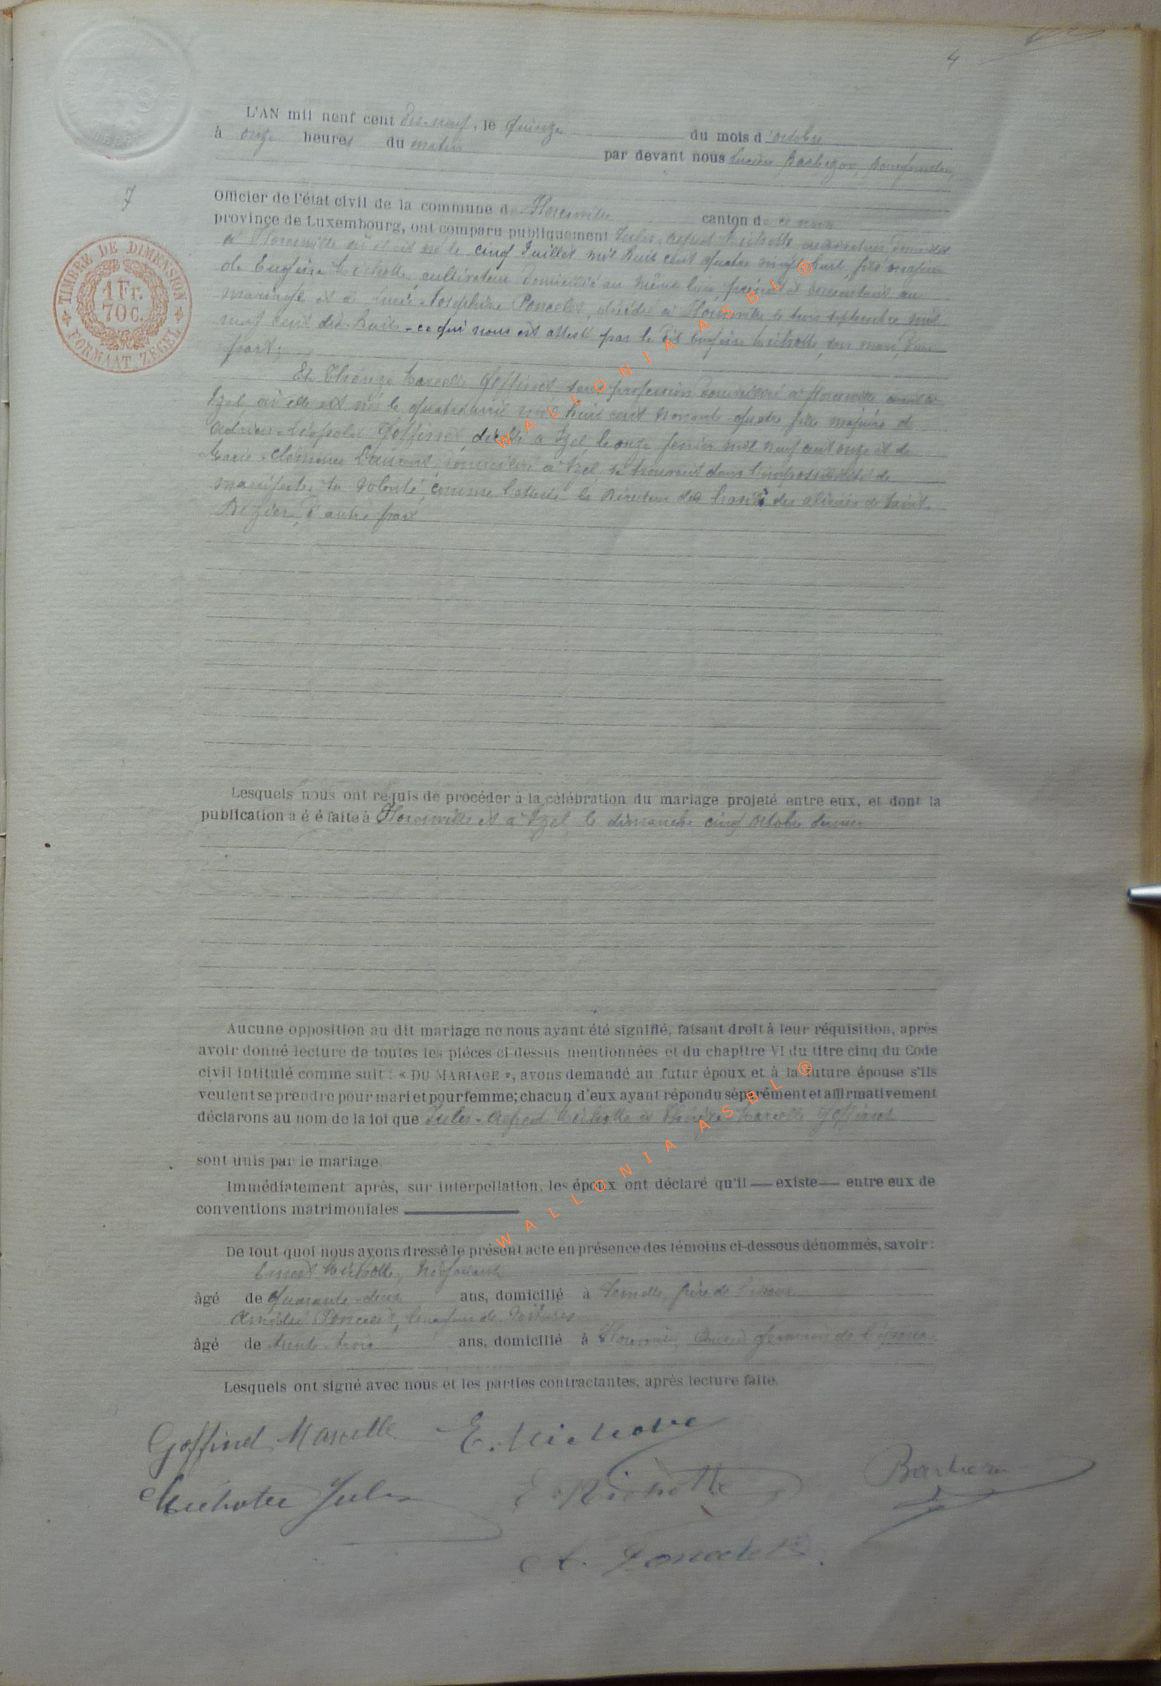 4
L'AN mil neuf cent dix-neuf, le quinze du mois d'octobre
à onze heures du matin par devant nous Lucien
7
Officier de l'état civil de la commune de Florenville canton de ce nom
province de Luxembourg, ont comparu publiquement Jules-Alfred Michotte, domicilié
à Florenville où il est né le cinq Juillet mil huit cent quatre vingt huit, fils majeur
de Eugène Michotte, cultivateur domicilié au même lieu, présent et consentant au
mariage et de Joséphine Poncelet, décédée à Florenville le septembre mil
neuf cent dix-huit - ce qui nous est attesté par le dit Eugène Michotte, son mari, d'une
part;
Et Thérèse Marcelle Goffinet sans profession domiciliée à Florenville
Izel où elle est née le quatre avril mil huit cent nonante-quatre fille majeure de
Adrien-Léopold Goffinet décédé à Izel le onze février mil neuf cent onze et de
Marie-Clémence domiciliée à Izel, se trouvant dans l'impossibilité de
manifester sa volonté comme l'atteste le Directeur des aliénés de Saint
d'autre part
TIMBRE DE DIMENSION
1 Fr.
70 C.
FORMAAT ZEGEL
Lesquels nous ont requis de procéder à la célébration du mariage projeté entre eux, et dont la
publication a é é faite à Florenville et à Izel le dimanche cinq octobre dernier
Aucune opposition au dit mariage ne nous ayant été signifié, faisant droit à leur réquisition, après
avoir donné lecture de toutes les pièces ci-dessus mentionnées et du chapitre VI du titre cinq du Code
civil intitulé comme suit : « DU MARIAGE », avons demandé au futur époux et à la future épouse s'ils
veulent se prendre pour mari et pour femme; chacun d'eux ayant répondu séparément et affirmativement
déclarons au nom de la loi que Jules-Alfred Michotte et Thérèse-Marcelle Goffinet
sont unis par le mariage.
Immédiatement après, sur interpellation, les époux ont déclaré qu'il — existe — entre eux de
conventions matrimoniales
De tout quoi nous avons dressé le présent acte en présence des témoins ci-dessous dénommés, savoir :
Ernest Michotte, négociant
âgé de quarante-deux ans, domicilié à frère de l'époux
Amédée Poncelet, loueur de voitures
âgé de trente-trois ans, domicilié à Florenville, cousin germain de l'époux
Lesquels ont signé avec nous et les parties contractantes, après lecture faite.
Goffinet Marcelle E. Michotte
Michotte Jules E Michotte
A. Poncelet
WALLONIA ASBL ®
WALLONIA ASBL ®